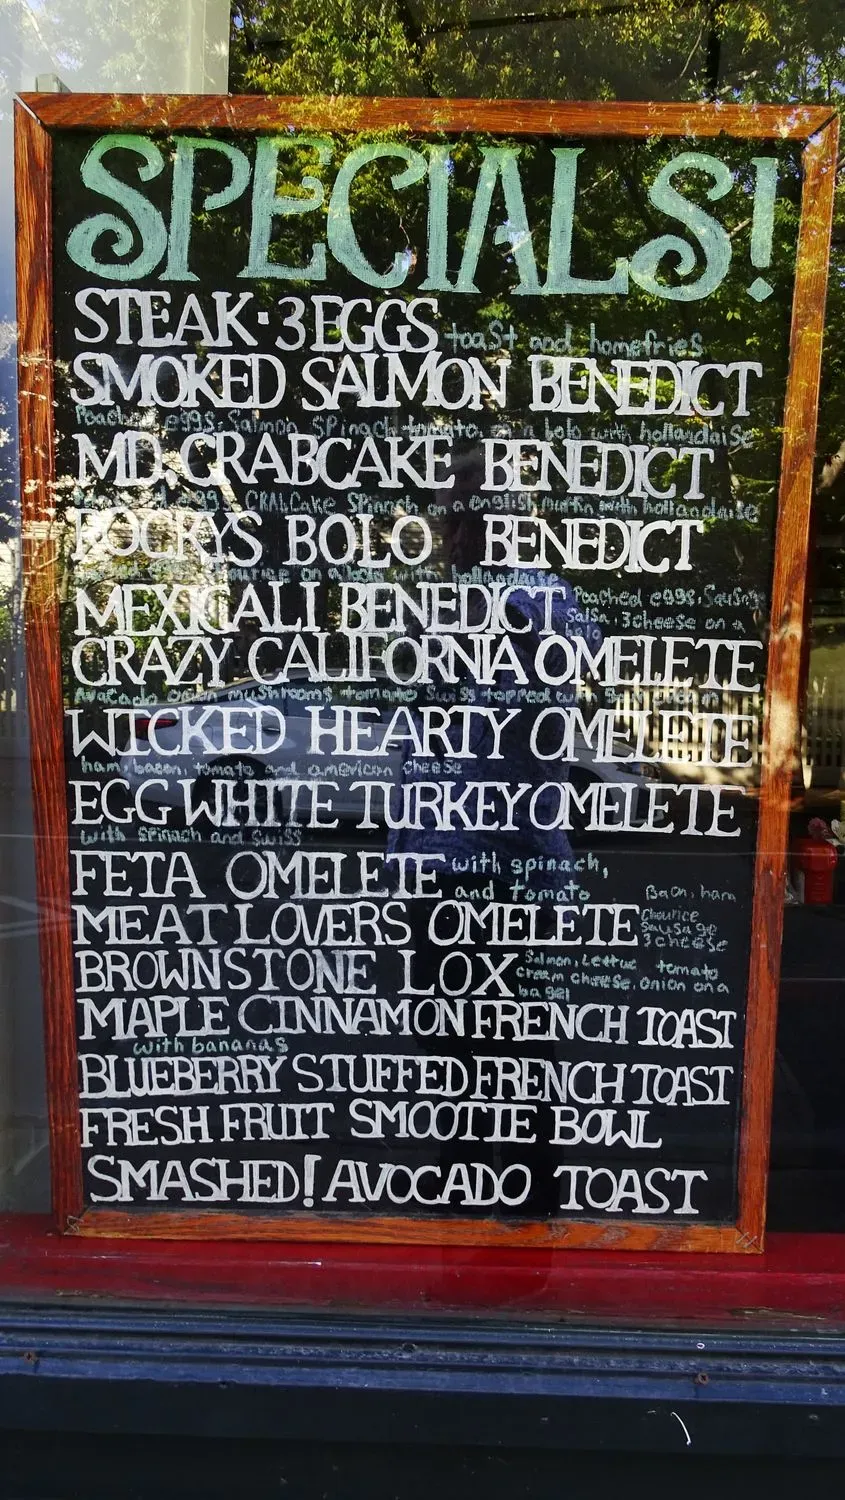 SPECIALS!
STEAK·3 EGGS toast and homefries
SMOKED SALMON BENEDICT
Poached eggs, Salmon Spinach tomato, on a bolo with hollandaise
MD. CRABCAKE BENEDICT
eggs, CRAbCake Spinach on a english muffin with hollandaise
ROCKYS BOLO BENEDICT
chourice on a bolo with hollandaise
MEXICALI BENEDICT Poached eggs, Sausage
Salsa, 3 cheese on a
bolo
CRAZY CALIFORNIA OMELETE
Avacado onion mushrooms tomato Swiss topped with sour cream
WICKED HEARTY OMELETE
ham, bacon, tomato and american cheese
EGG WHITE TURKEY OMELETE
with spinach and Swiss
FETA OMELETE with spinach,
and tomato
MEAT LOVERS OMELETE Bacn, ham
Chourice
Sausage
3 cheese
BROWNSTONE LOX Salmon, Lettuc tomato
cream cheese, onion on a
bagel
MAPLE CINNAMON FRENCH TOAST
with bananas
BLUEBERRY STUFFED FRENCH TOAST
FRESH FRUIT SMOOTIE BOWL
SMASHED! AVOCADO TOAST